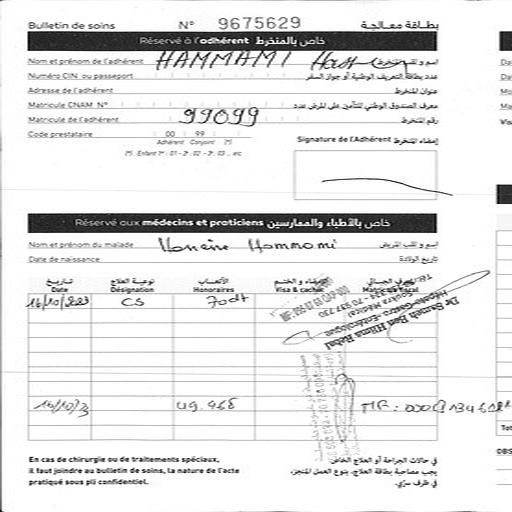 Bulletin de soins N° 9675629 بطاقة معالجة
Réservé à l'adhérent خاص بالمنخرط
Nom et prénom de l'adhérent HAMMAMI اسم و لقب المنخرط
Numéro CIN ou passeport عدد بطاقة التعريف الوطنية أو جواز السفر
Adresse de l'adhérent عنوان المنخرط
Matricule CNAM N° معرف الصندوق الوطني للتأمين على المرض عدد
Matricule de l'adhérent 99099 رقم المنخرط
Code prestataire 00 99 75
Adhérent Conjoint
Signature de l'Adhérent إمضاء المنخرط
Réservé aux médecins et praticiens خاص بالأطباء والممارسين
Nom et prénom du malade Hammami اسم و لقب المريض
Date de naissance تاريخ الولادة
تاريخ نوعية العلاج الأتعاب الإمضاء و الختم
Date Désignation Honoraires Visa & cachet
16/10/2023 CS 70dt
Dr Sameh Ben Hlima
16/10/23 49.468 MF :
En cas de chirurgie ou de traitements spéciaux,
il faut joindre au bulletin de soins, la nature de l'acte
pratiqué sous pli confidentiel.
في حالات الجراحة أو العلاج الخاص
يجب مصاحبة بطاقة العلاج، بنوع العمل المنجز،
في ظرف سرّي.